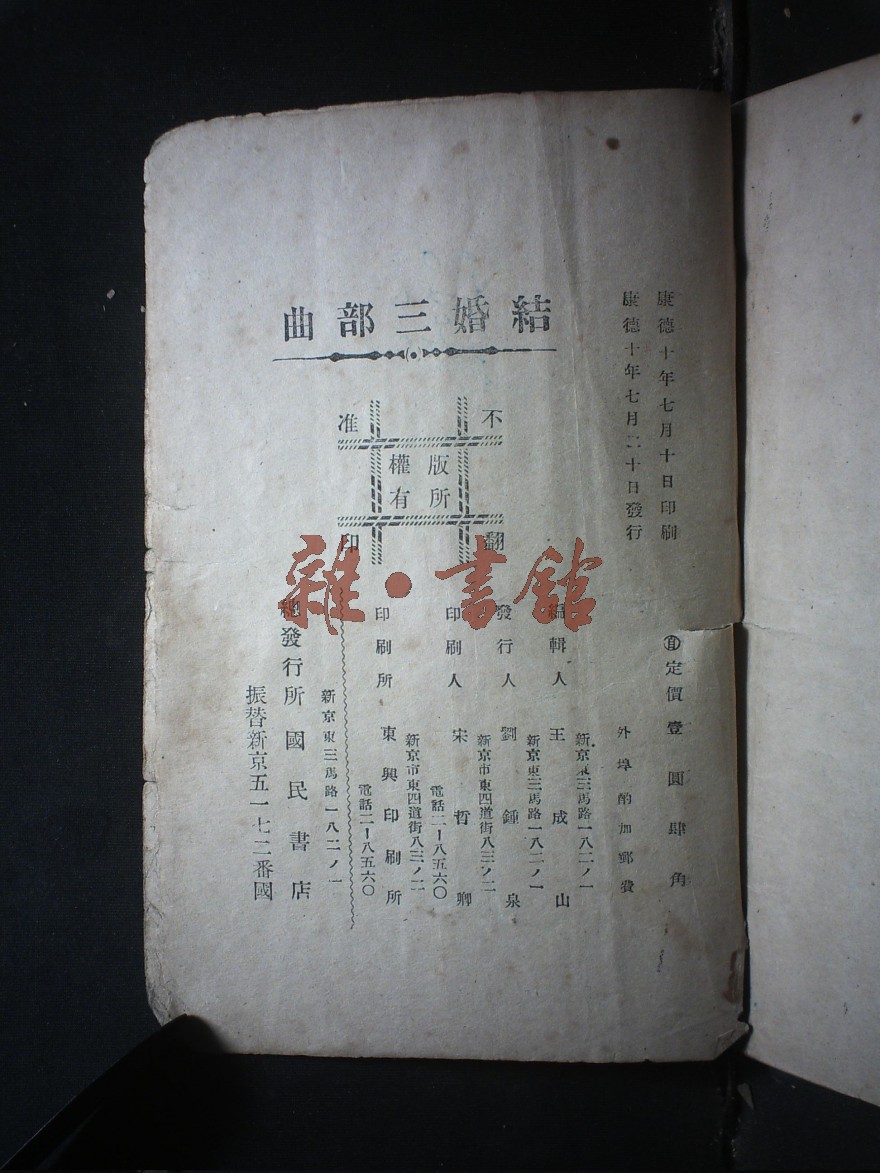 結婚三部曲
康德十年七月十日印刷
康德十年七月二十日發行
不准翻印
版權所有
定價壹圓肆角
外埠酌加郵費
新京東三馬路一八二ノ一
編輯人 王成山
新京東三馬路一八二ノ一
發行人 劉鍾泉
新京市東四道街八三ノ二
印刷人 宋哲卿
電話二ー八五六〇
新京市東四道街八三ノ二
印刷所 東興印刷所
電話二ー八五六〇
新京東三馬路一八二ノ一
總發行所 國民書店
振替新京五一七二番國
雜·書館